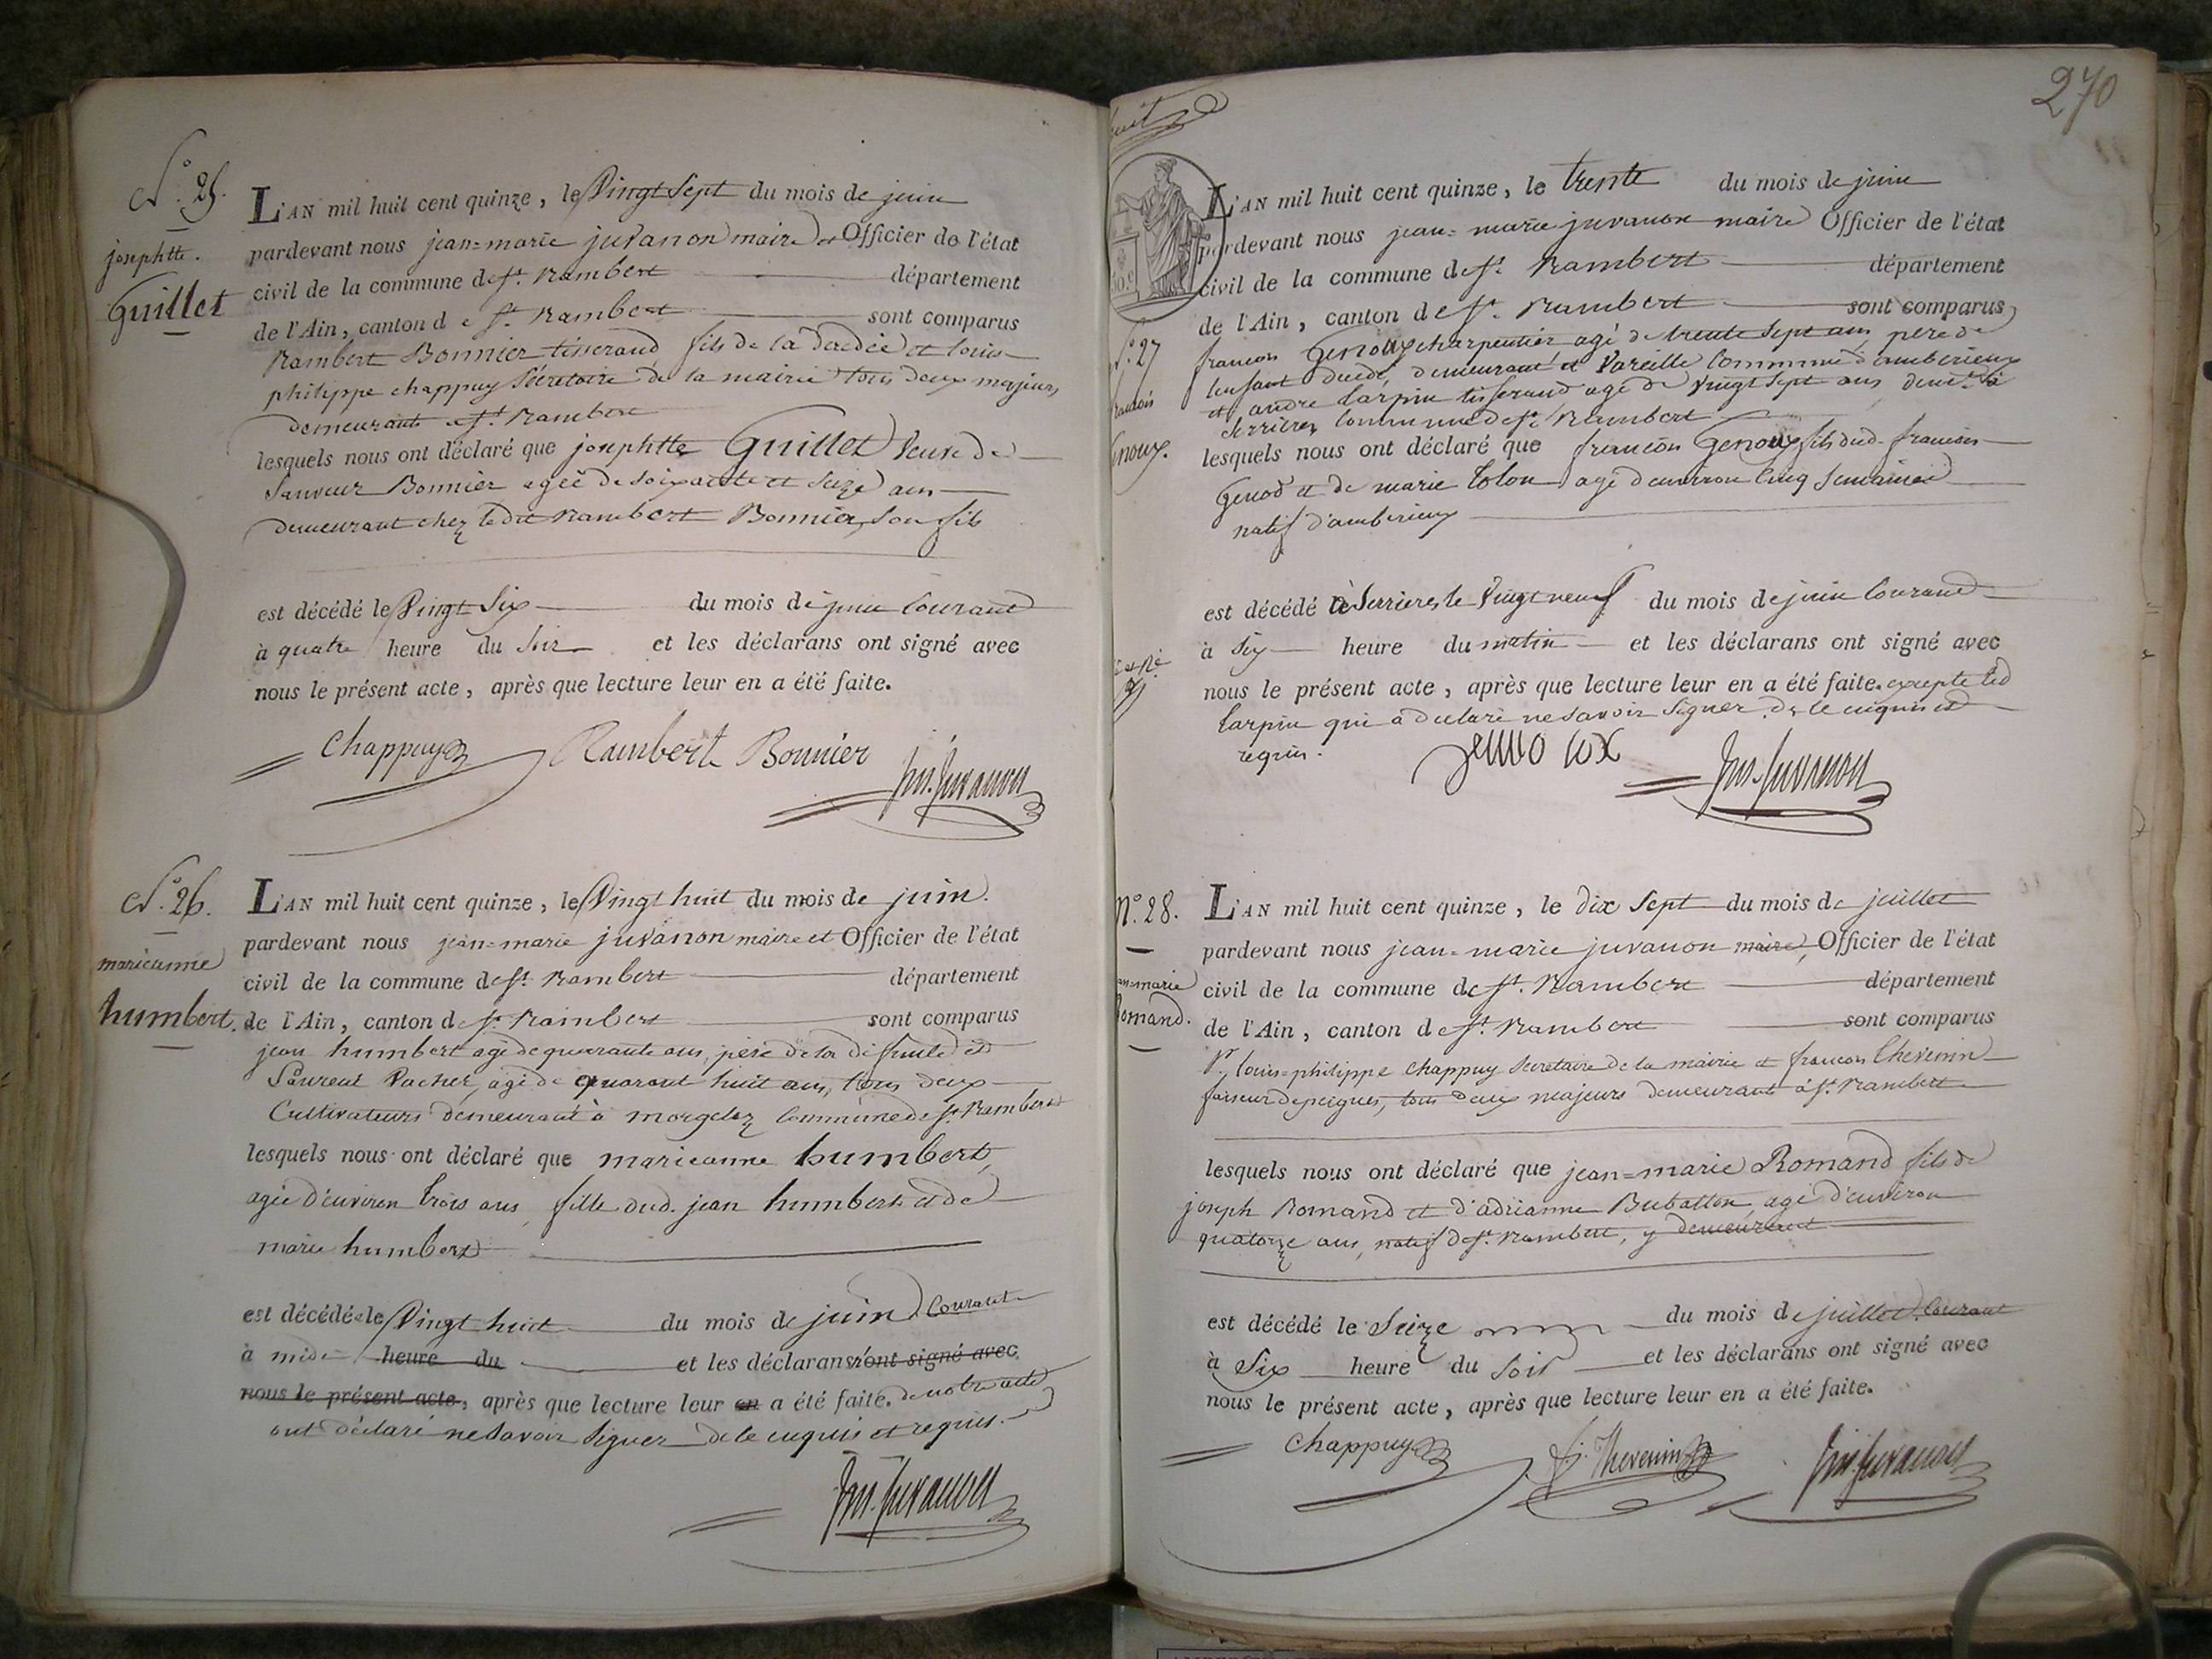 N.° 25.
josephtte.
Guillet
L'AN mil huit cent quinze, le Vingt Sept du mois de juin
pardevant nous jean=marie juvanon maire et Officier de l'état
civil de la commune de St. Rambert département
de l'Ain, canton de St. Rambert sont comparus
Rambert Bonnier tisserand fils de la décédée et louis
philippe chappuy Sécretaire de la mairie tous deux majeurs,
demeurants à St. Rambert
lesquels nous ont déclaré que josephtte Guillet Veuve de
Sauveur Bonnier agée de soixante et Seize ans
demeurant chez ledit Rambert Bonnier, son fils
est décédé le Vingt Six du mois de juin Courant
à quatre heure du Soir et les déclarans ont signé avec
nous le présent acte, après que lecture leur en a été faite.
Chappuy Rambert Bonnier
Jm. Juvanon
N.° 26.
marieanne
humbert.
L'AN mil huit cent quinze, le Vingt huit du mois de juin.
pardevant nous jean=marie juvanon maire et Officier de l'état
civil de la commune de St. Rambert département
de l'Ain, canton de St. Rambert sont comparus
jean humbert agé de quarante ans, père de la défunte et
Laurent Vacher, agé de quarant huit ans, tous deux
Cultivateurs demeurant à morgelaz Commune de St. Rambert
lesquels nous ont déclaré que marieanne humbert,
agée d'environ trois ans, fille dud. jean humbert et de
marie humbert
est décédée le Vingt huit du mois de juin Courant
à midi heure du et les déclarans n'ont signé avec
nous le présent acte, après que lecture leur en a été faite. de notre acte
ont déclaré ne savoir Signer de ce enquis et requis.
Jm. Juvanon
270
L'AN mil huit cent quinze, le trente du mois de juin
pardevant nous jean=marie juvanon maire Officier de l'état
civil de la commune de St. Rambert département
de l'Ain, canton de St. Rambert sont comparus
N.° 27
françois
Genoux.
françois Genoux charpentier agé de trente Sept ans, père de
lenfant décédé, demeurant à Vareille Commune d'amberieux
et andre Carpin tisserand agé de Vingt Sept ans demt. à
Serrieres Commune de St. Rambert
lesquels nous ont déclaré que françois Genoux fils dud. françois
Genod et de marie Colon agé d'environ Cinq Semaines
natif d'amberieux
est décédé à Serrieres le Vingt neuf du mois de juin Courant
à Six heure du matin et les déclarans ont signé avec
nous le présent acte, après que lecture leur en a été faite. excepté led
Carpin qui à déclaré ne savoir Signer. de ce enquis et
requis.
Jm. Juvanon
N.° 28.
jean-marie
Romand.
L'AN mil huit cent quinze, le dix Sept du mois de juillet
pardevant nous jean=marie juvanon maire, Officier de l'état
civil de la commune de St. Rambert département
de l'Ain, canton de St. Rambert sont comparus
Sr. louis=philippe chappuy Secretaire de la mairie et françois thevenin
faiseur de peignes, tous deux majeurs demeurants à St. Rambert
lesquels nous ont déclaré que jean=marie Romand fils de
joseph Romand et d'adrianne Bubatton agé d'environ
quatorze ans, natif de St. Rambert, y demeurant
est décédé le Seize du mois de juillet Courant
à Six heure du Soir et les déclarans ont signé avec
nous le présent acte, après que lecture leur en a été faite.
Chappuy f. Thevenin Jm. Juvanon